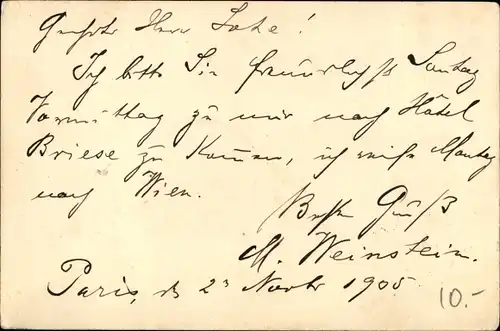 Geehrter Herr !
Ich bitte Sie freundlichst Sontag
Vormittag zu mir nach Hôtel
Briese zu Komen, ich reise Montag
nach Wien.
Besten Gruß
M. Weinstein.
Paris, d 2 Novbr 1905
10.-